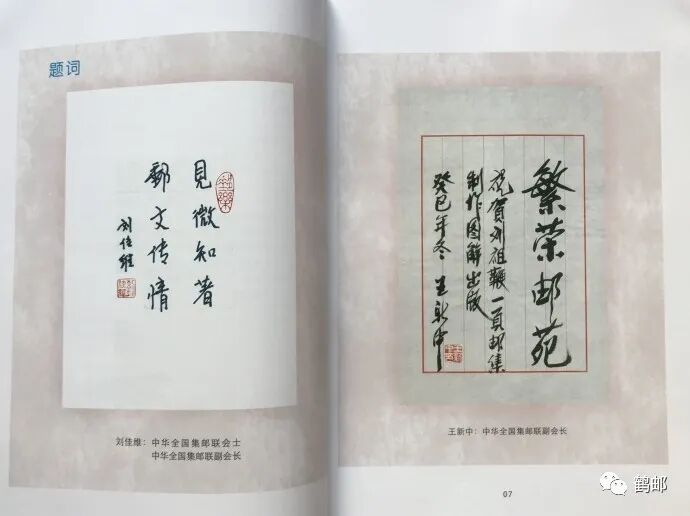 题词
見微知著
郵文传情
刘佳维
刘佳维：中华全国集邮联会士
中华全国集邮联副会长
繁荣邮苑
祝贺刘祖鞭一頁邮集
制作图解出版
癸巳年冬 王新中
王新中：中华全国集邮联副会长
07
鹤邮